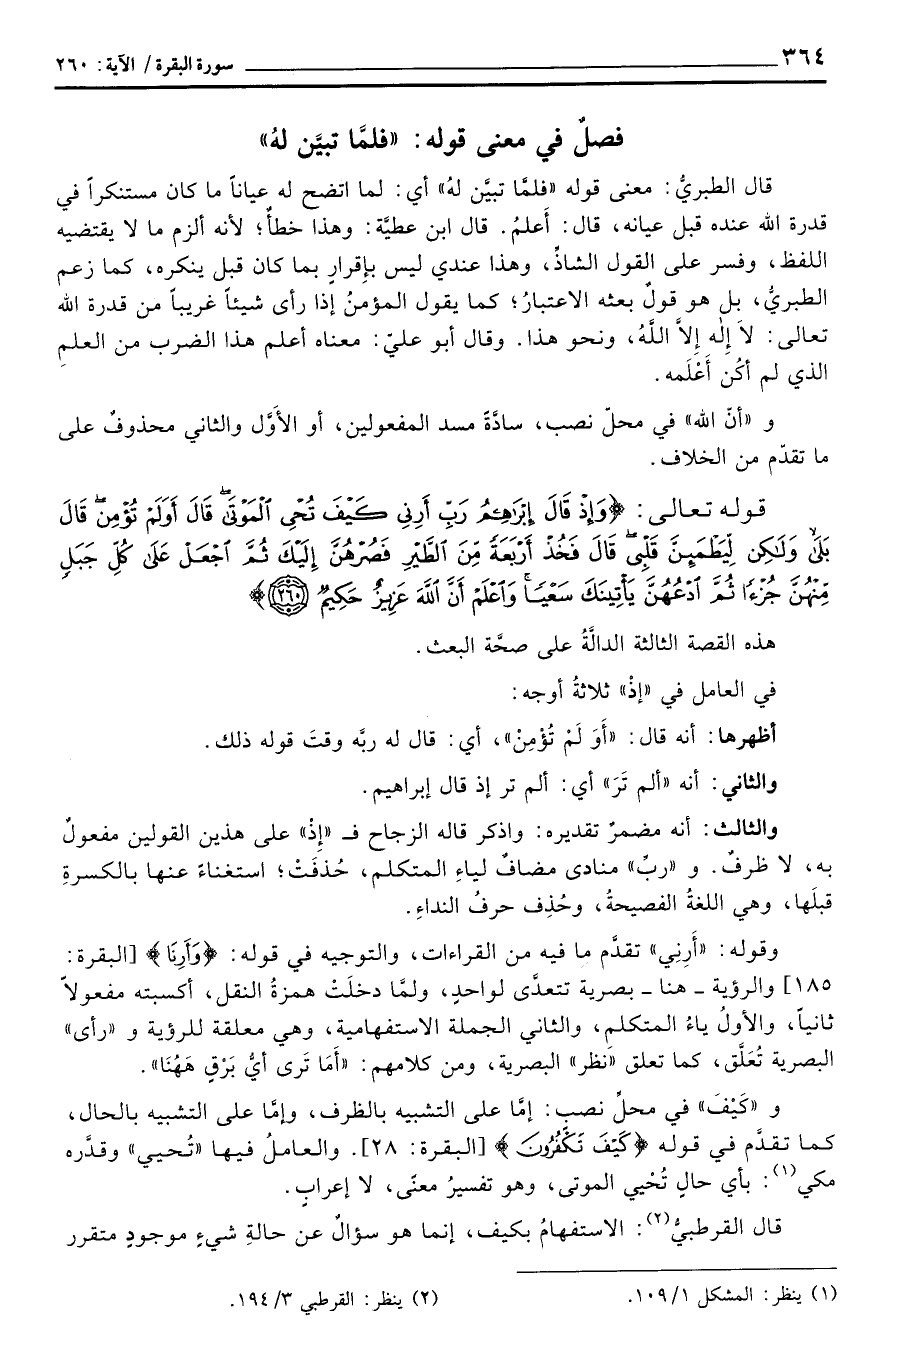 ٣٦٤ سورة البقرة / الآية: ٢٦٠
فصلٌ في معنى قوله: «فلمَّا تبيَّن لهُ»
قال الطبريُّ: معنى قوله «فلمَّا تبيَّن لهُ» أي: لما اتضح له عياناً ما كان مستنكراً في
قدرة الله عنده قبل عيانه، قال: أَعلمُ. قال ابن عطيَّة: وهذا خطأٌ؛ لأنه ألزم ما لا يقتضيه
اللفظ، وفسر على القول الشاذِّ، وهذا عندي ليس بإِقرارٍ بما كان قبل ينكره، كما زعم
الطبريُّ، بل هو قولٌ بعثه الاعتبارُ؛ كما يقول المؤمنُ إذا رأى شيئاً غريباً من قدرة الله
تعالى: لاَ إِلٰه إِلاَّ اللَّهُ، ونحو هذا. وقال أبو عليّ: معناه أعلم هذا الضرب من العلمِ
الذي لم أكُن أَعْلَمه.
و «أنّ الله» في محلّ نصب، سادَّةً مسد المفعولين، أو الأوَّل والثاني محذوفٌ على
ما تقدّم من الخلاف.
قوله تعالى: ﴿وَإِذْ قَالَ إِبْرَٰهِـۧمُ رَبِّ أَرِنِى كَيْفَ تُحْىِ ٱلْمَوْتَىٰۖ قَالَ أَوَلَمْ تُؤْمِنۖ قَالَ
بَلَىٰ وَلَـٰكِن لِّيَطْمَئِنَّ قَلْبِىۖ قَالَ فَخُذْ أَرْبَعَةً مِّنَ ٱلطَّيْرِ فَصُرْهُنَّ إِلَيْكَ ثُمَّ ٱجْعَلْ عَلَىٰ كُلِّ جَبَلٍ
مِّنْهُنَّ جُزْءًا ثُمَّ ٱدْعُهُنَّ يَأْتِينَكَ سَعْيًاۚ وَٱعْلَمْ أَنَّ ٱللَّهَ عَزِيزٌ حَكِيمٌ ۝٢٦٠﴾
هذه القصة الثالثة الدالَّةُ على صحَّة البعث.
في العامل في «إذْ» ثلاثةُ أوجه:
أظهرها: أنه قال: «أَوَ لَمْ تُؤْمِنْ»، أي: قال له ربَّه وقتَ قوله ذلك.
والثاني: أنه «ألم تَرَ» أي: ألم تر إذ قال إبراهيم.
والثالث: أنه مضمرٌ تقديره: واذكر قاله الزجاج فـ «إِذْ» على هذين القولين مفعولٌ
به، لا ظرفٌ. و «ربِّ» منادى مضافٌ لياءِ المتكلم، حُذفَتْ؛ استغناءً عنها بالكسرةِ
قبلَها، وهي اللغةُ الفصيحةُ، وحُذِف حرفُ النداءِ.
وقوله: «أَرِنِي» تقدَّم ما فيه من القراءات، والتوجيه في قوله: ﴿وَأَرِنَا﴾ [البقرة:
١٨٥] والرؤية ـ هنا ـ بصرية تتعدَّى لواحدٍ، ولمَّا دخلَتْ همزةُ النقل، أكسبته مفعولاً
ثانياً، والأولُ ياءُ المتكلم، والثاني الجملة الاستفهامية، وهي معلقة للرؤية و «رأى»
البصرية تُعَلَّق، كما تعلق «نَظر» البصرية، ومن كلامهم: «أَمَا تَرى أيُّ بَرْقٍ هَهُنَا».
و «كَيْفَ» في محلِّ نصب: إمَّا على التشبيه بالظرف، وإمَّا على التشبيه بالحال،
كما تقدَّم في قوله ﴿كَيْفَ تَكْفُرُونَ﴾ [البقرة: ٢٨]. والعاملُ فيها «تُحيي» وقدَّره
مكي(١): بأي حالٍ تُحْيي الموتى، وهو تفسيرُ معنًى، لا إعرابٍ.
قال القرطبيُّ(٢): الاستفهامُ بكيف، إنما هو سؤالٌ عن حالةِ شيءٍ موجودٍ متقرر
(١) ينظر: المشكل ١/١٠٩. (٢) ينظر: القرطبي ٣/١٩٤.